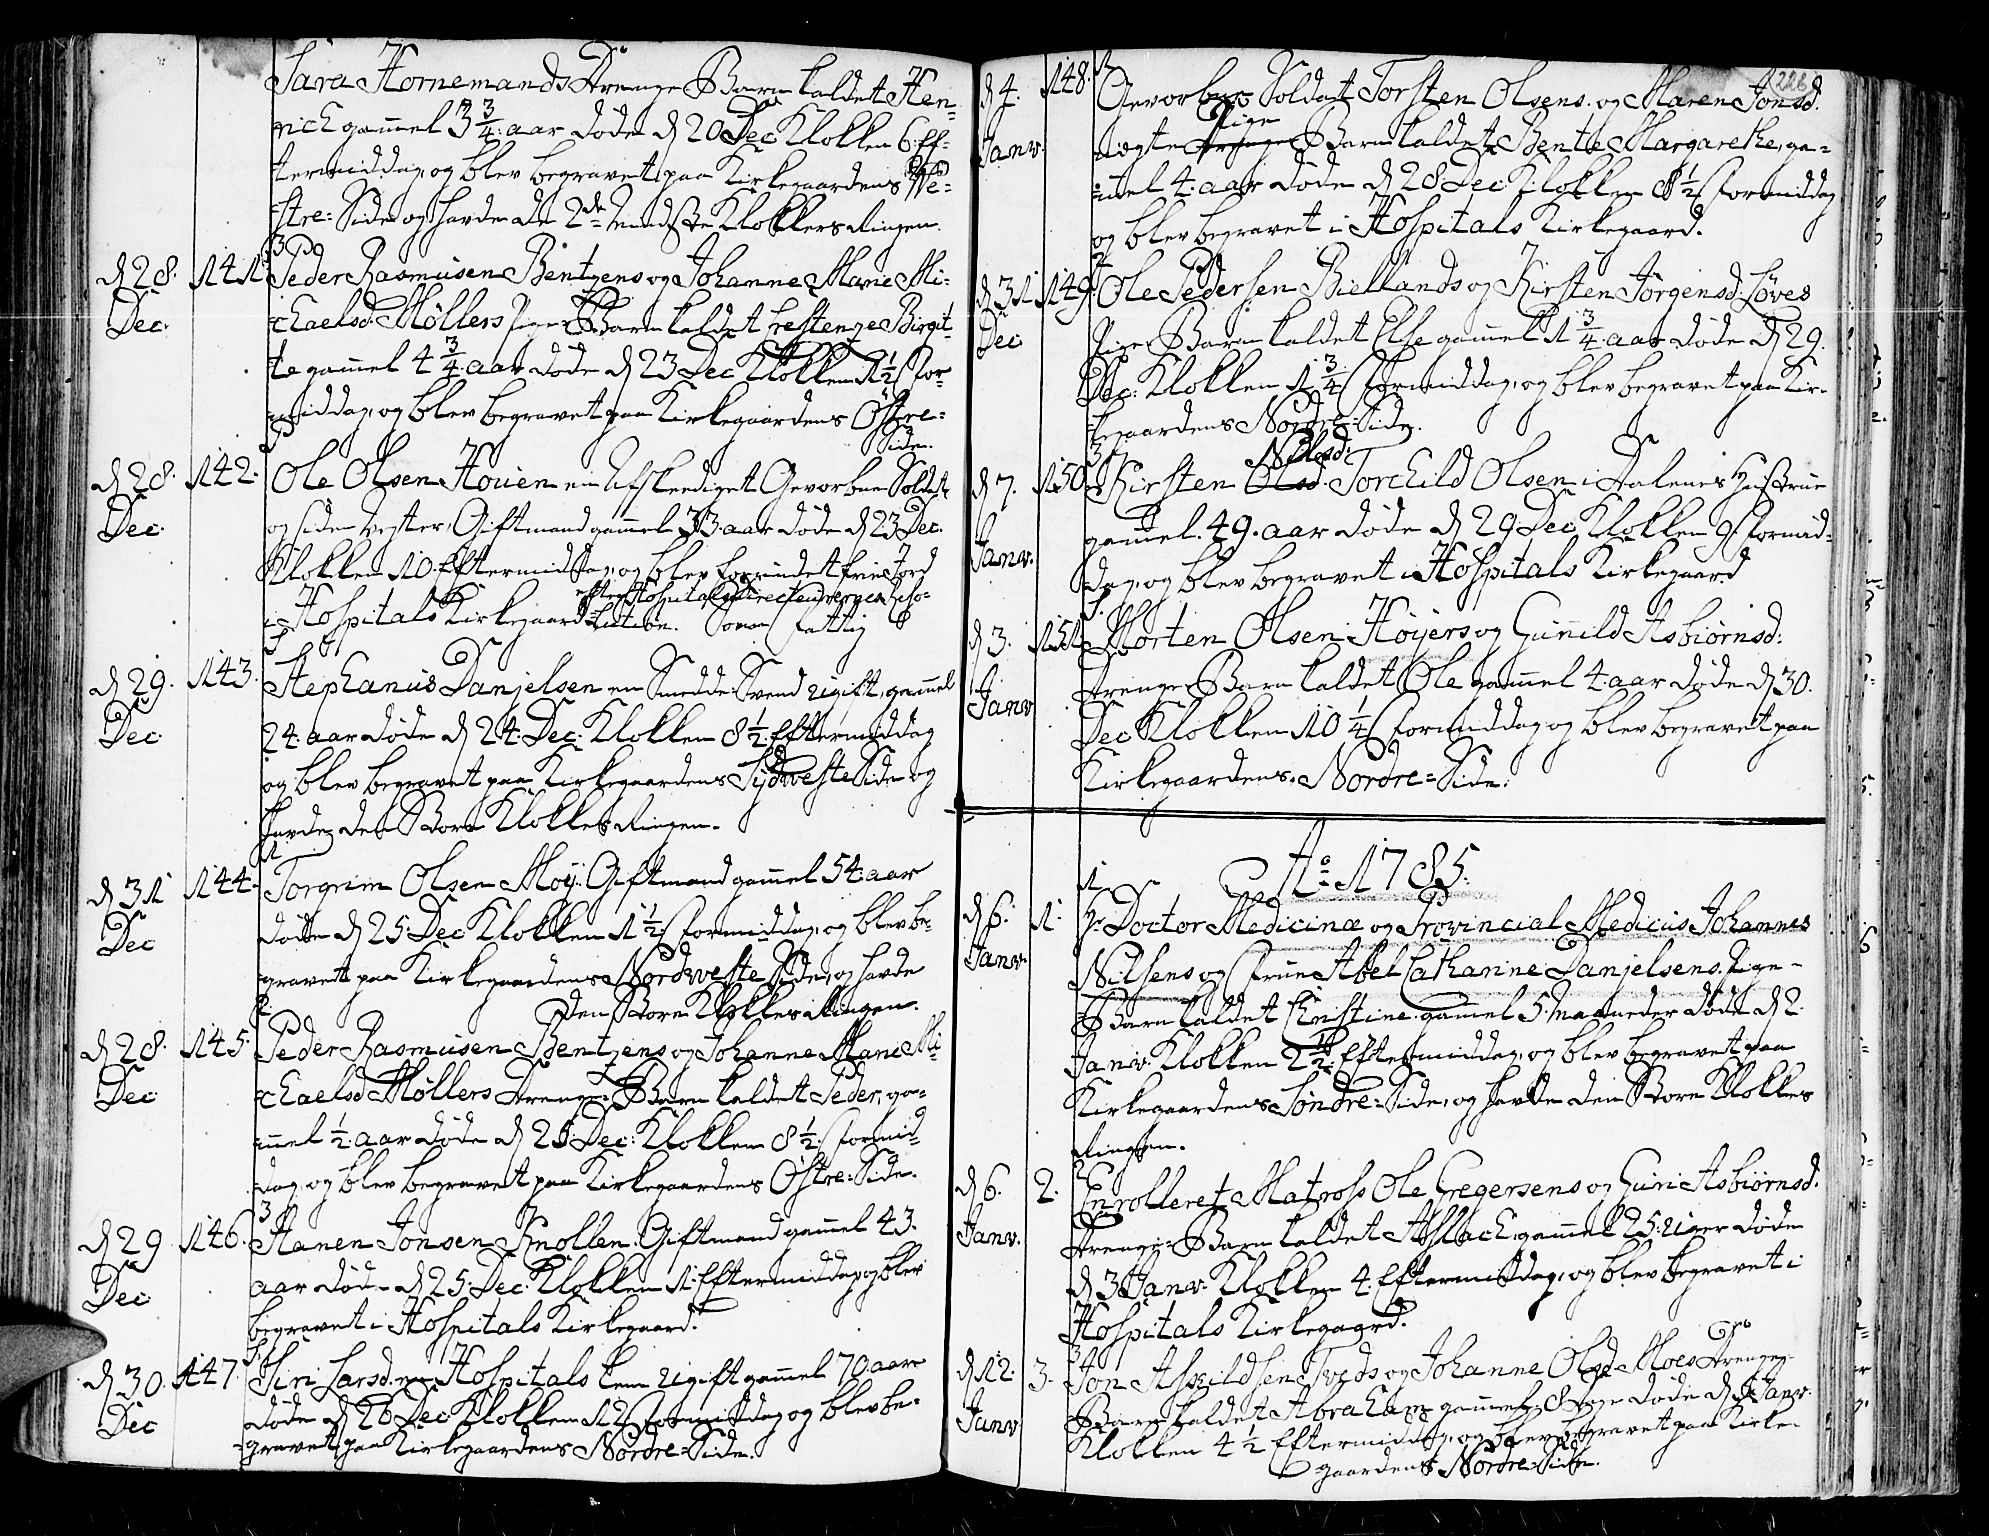 Sara Hornemands Drenge Barn kaldet Hen-
rich gammel 3 3/4 aar døde d 20 Dec Klokken 6 Ef-
termiddag, og blev begravet paa Kirkegaardens We-
stre Side og havde de 2de mindste Klokkers Ringen.
d 28. Dec. 141. Peder Rasmusen Bentzens og Johanne Marie Mi-
chaelsd. Møllers Pige Barn kaldet Birgit-
te gammel 4 3/4 aar døde d 23 Dec Klokken 1 1/2 For-
middag, og blev begravet paa Kirkegaardens Østre=
Side.
d 28. Dec. 142. Ole Olsen Houen en Afskeediget Gevorben Soldat
og siden Giftmand gammel 33 aar døde d 23 Dec.
Klokken 10 Eftermiddag, og blev forundt frie Jord
i Hospitals Kirkegaard efter Hospitals Directeurernes Reso-
lution. Fattig
d 29. Dec. 143. Stephanus Danjelsen en Smedde Svend ugift, gammel
24 aar døde d 24 Dec: Klokken 8 1/2 Eftermiddag
og blev begravet paa Kirkegaardens Sydveste Side og
havde den Store Klokkes Ringen.
d 31 Dec 144. Torgrim Olsen Moy. Giftmand gammel 54 aar
døde d 25 Dec Klokken 1 1/2 Formiddag, og blev be-
gravet paa Kirkegaardens Nordveste Side, og havde
Den Store Klokkes Ringen.
d 28. Dec 145. Peder Rasmusen Bentzens og Johanne Marie Mi-
chaelsd Møllers Drenge Barn kaldet Peder, ga-
mmel 1/2 aar døde d 25 Dec: Klokken 8 1/2 Formid-
dag, og blev begravet paa Kirkegaardens Østre: Side.
d 29 Dec 146. Hanen Jonsen Knollen. Giftmand gammel 43.
aar døde d 25 Dec Klokken 1 Eftermiddag, og blev
begravet i Hospitals Kirkegaard.
d 30. Dec 147. Siri Larsd. en Hospitals Lem ugift gammel 70 aar
døde d 26 Dec Klokken 12 Formiddag og blev be-
gravet paa Kirkegaardens Nordre Side.
226
d 4. Janv. 148. Gevorben Soldat Torsten Olsens og Maren Jonsd.
Pige
ægte Barn kaldet Bente Margarethe, ga-
mmel 4 aar døde d 28 Dec: Klokken 8 1/2 Formiddag
og blev begravet i Hospitals Kirkegaard.
d 31 Dec 149. Ole Pedersen Biellands og Kirsten Jørgensd. Løves
Pige Barn kaldet Else gammel 1 3/4 aar døde d 29.
Dec. Klokken 1 3/4 Formiddag, og blev begravet paa Kir-
kegaardens Nordre Side.
Nilsd:
d 7. Janv. 150 Kirsten Olsd. Torchild Olsen i Dalenes Hustrue
gammel 49 aar døde d 29 Dec Klokken 9 Formid-
dag, og blev begravet i Hospitals Kirkegaard
d 3. Janv 151 Morten Olsen Høyers og Gunnild Asbiørnsd:
Drenge Barn kaldet Ole gammel 4 aar døde d 30.
Dec Klokken 10 1/4 Formiddag og blev begravet paa
Kirkegaardens Nordre=Side.
Ao 1785.
d 6. Janv. 1. Hr Doctor Medicinæ og Provincial Medicus Johannes
Nilsens og Frue Abel Cathanne Danjelsens Pige-
Barn kaldet Christine gammel 5 Maaneder døde d 2.
Janv. Klokken 2 1/2 Eftermiddag, og blev begravet paa
Kirkegaardens Søndre Side, og havde den Store Klokkes
Ringen.
d 6. Janv. 2. Enrolleret Matross Ole Gregersens og Guri Asbiørnsd.
Drenge=Barn kaldet Aslach, gammel 25 uger døde
d 3 Janv. Klokken 4 Eftermiddag, og blev begravet i
Hospitals Kirkegaard.
d 12. Janv 3. Jon Asheildsen Tveds og Johanne Olsd Moes Drenge
Barn kaldet Abraham gammel 8 Dage døde d 9 Janv.
Klokken 4 1/2 Eftermiddag, og blev begravet paa Kirke-
gaardens Nordre=Side.